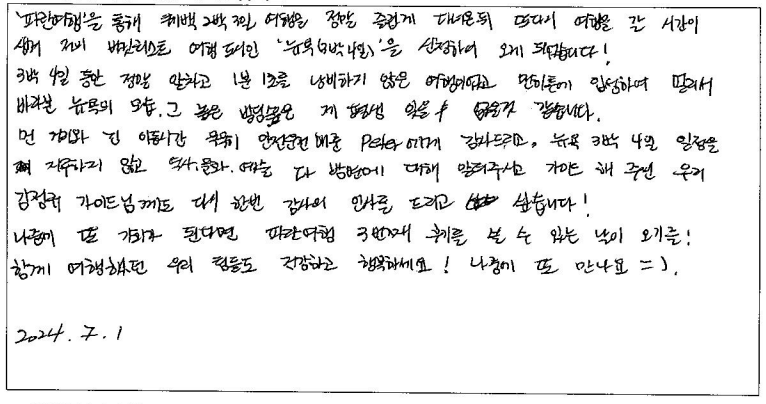 '파란여행'을 통해 퀘백 2박 3일 여행을 정말 즐겁게 다녀온뒤 또다시 여행을 갈 시간이
생겨 저의 버킷리스트 여행 코어인 '뉴욕(3박 4일)'을 신청하여 오게 되었습니다!
3박 4일 동안 정말 알차고 1분 1초를 낭비하지 않은 여행이었고 맨하튼에 입성하여 멀리서
바라본 뉴욕의 모습. 그 높은 빌딩숲은 제 평생 잊을 수 없을것 같습니다.
먼 거리와 긴 이동시간 묵묵히 안전운전 해준 Peter에게 감사드리고, 뉴욕 3박 4일 일정을
지루하지 않고 역사, 문화, 예술 다 방면에 대해 알려주시고 가이드 해 주신 우리
가이드님께도 다시 한번 감사의 인사를 드리고 싶습니다!
나중에 또 기회가 된다면 파란여행 3번째 후기를 쓸 수 있는 날이 오기를!
함께 여행했던 우리 팀들도 건강하고 행복하세요! 나중에 또 만나요 =).
2024. 7. 1